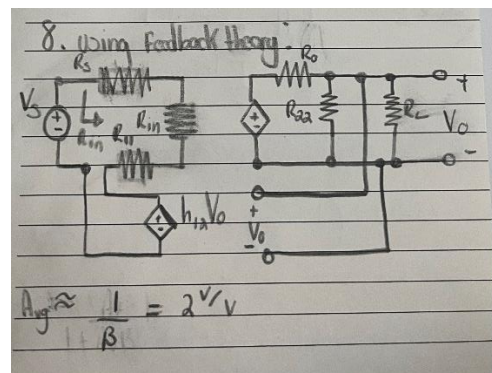 8. Using Feedback theory:
Rs
Ro
Vs
Rin
R11
Rin
R22
RL
+
Vo
-
h12Vo
+
Vo
-
Avg ≈ 1/β = 2 V/V